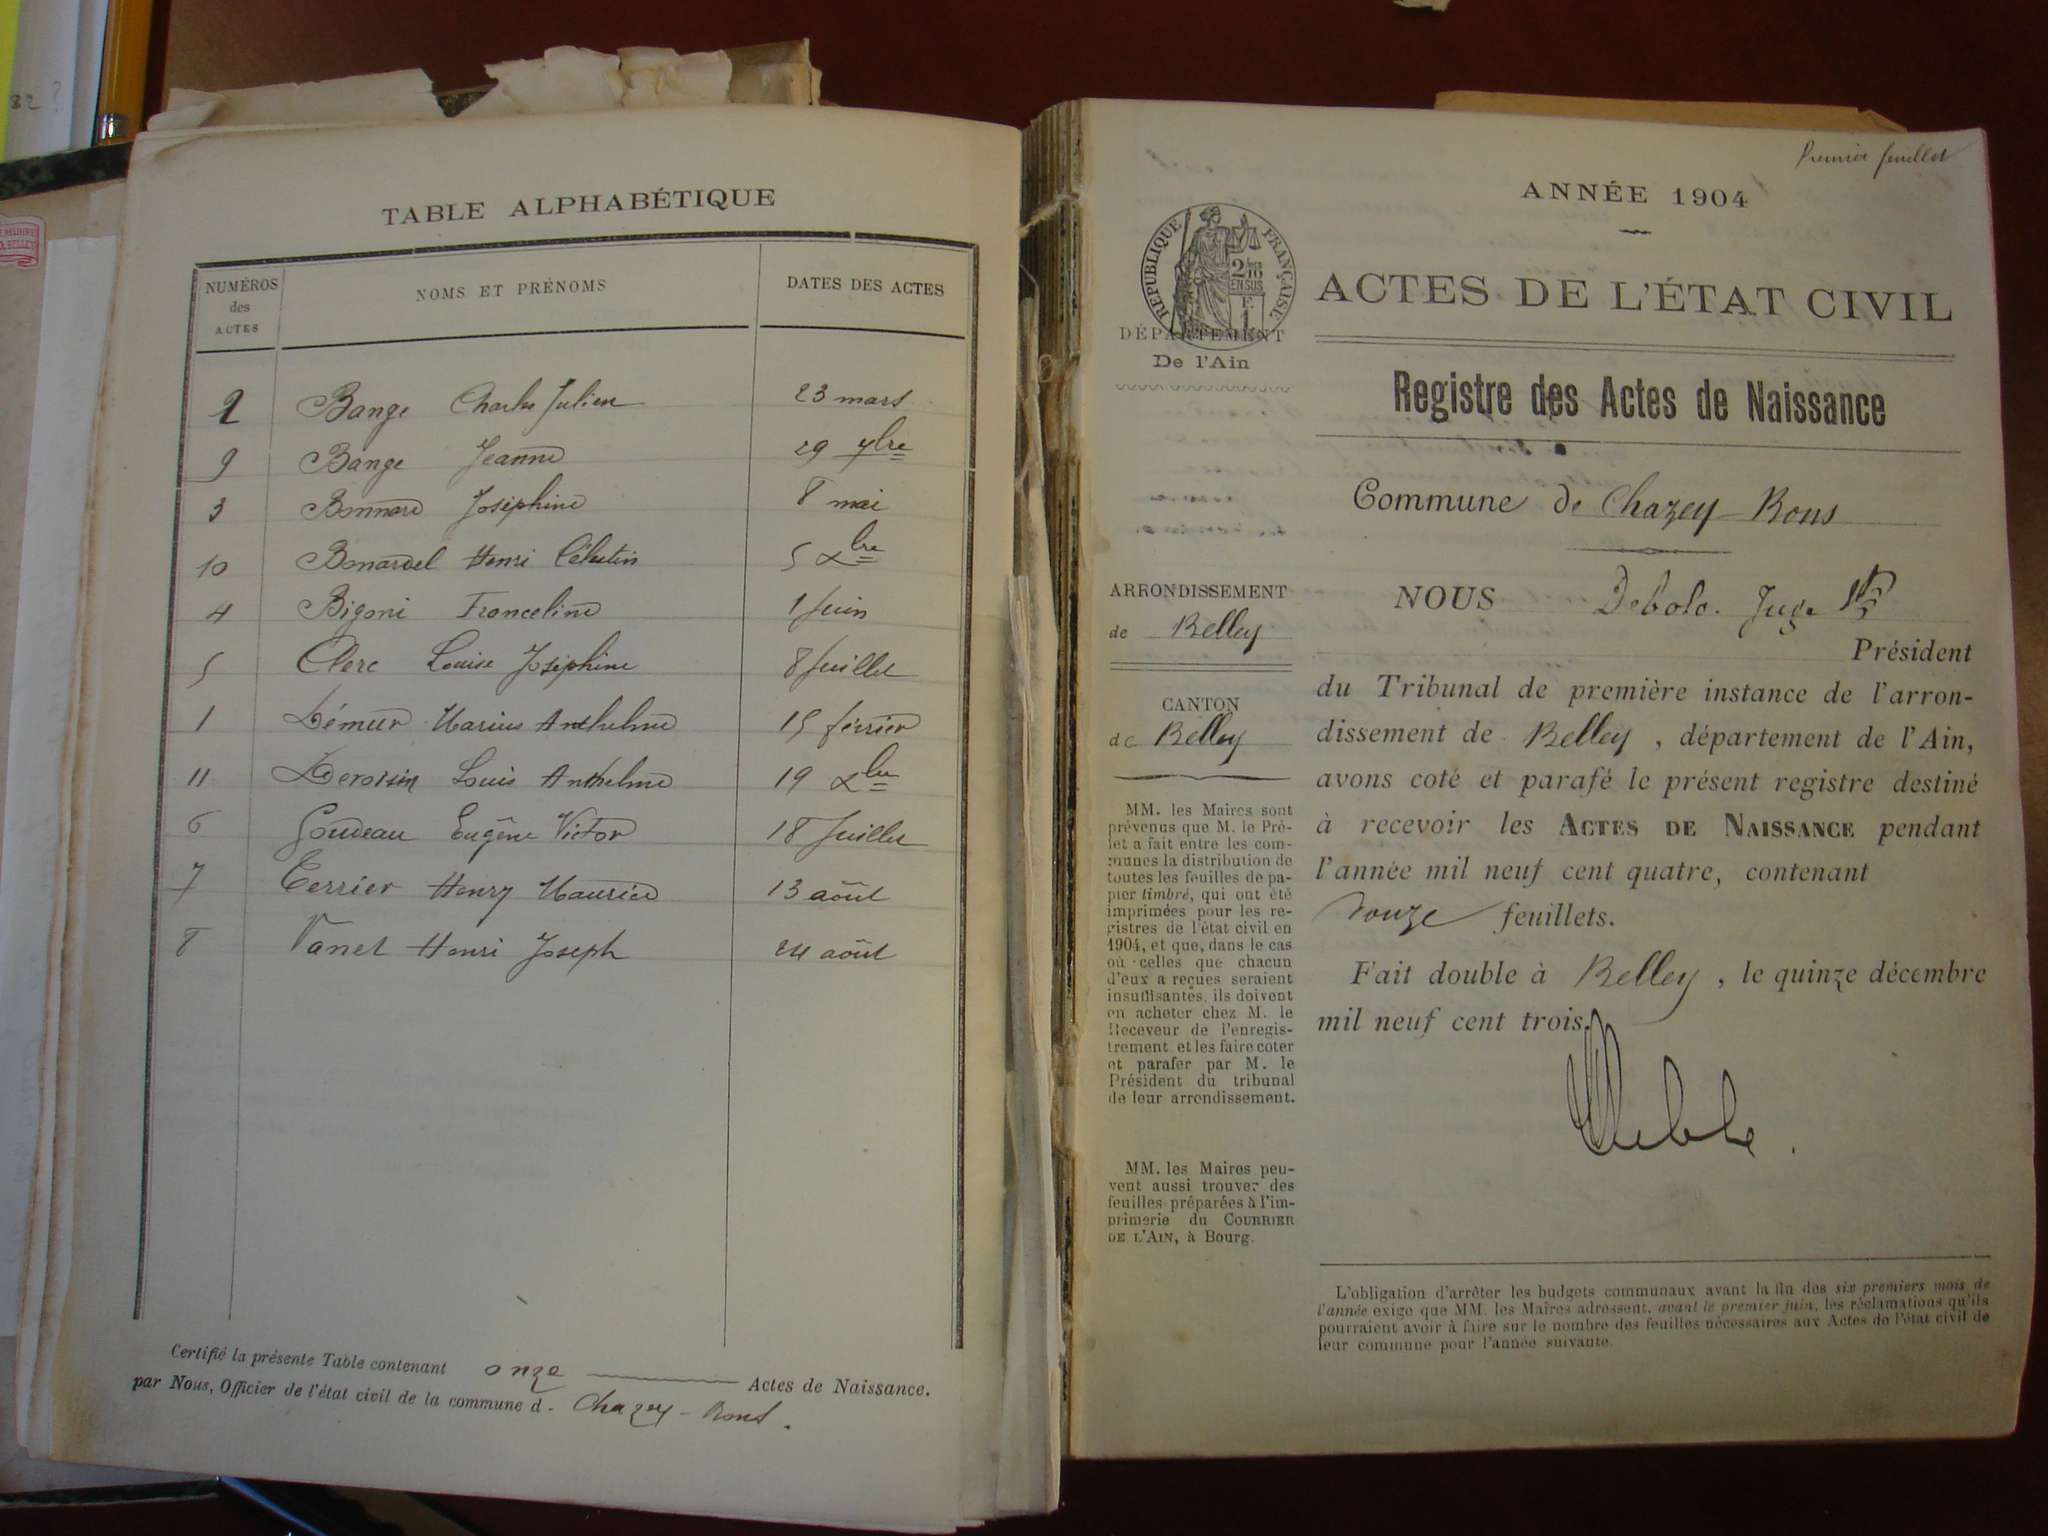 82?
TABLE ALPHABÉTIQUE
NUMÉROS des ACTES
NOMS ET PRÉNOMS
DATES DES ACTES
2 Bange Charles Julien 23 mars
9 Bange Jeanne 29 7bre
3 Bonnard Joséphine 8 mai
10 Bonardel Henri Célestin 5 Xbre
4 Bigoni Franceline 1 Juin
5 Clerc Louise Joséphine 8 Juillet
1 Démeur Marius Anthelme 15 février
11 Deroisin Louis Anthelme 19 Xbre
6 Goudeau Eugène Victor 18 Juillet
7 Terrier Henry Maurice 13 août
8 Vanet Henri Joseph 24 août
Certifié la présente Table contenant onze Actes de Naissance.
par Nous, Officier de l'état civil de la commune d. Chazey-Bons.
Premier feuillet
ANNÉE 1904
RÉPUBLIQUE FRANÇAISE
2/10
EN SUS
ACTES DE L'ÉTAT CIVIL
DÉPARTEMENT
De l'Ain
Registre des Actes de Naissance
Commune de Chazey-Bons
ARRONDISSEMENT
de Belley
CANTON
de Belley
MM. les Maires sont
prévenus que M. le Pré-
fet a fait entre les com-
munes la distribution de
toutes les feuilles de pa-
pier timbré, qui ont été
imprimées pour les re-
gistres de l'état civil en
1904, et que, dans le cas
où celles que chacun
d'eux a reçues seraient
insuffisantes, ils doivent
en acheter chez M. le
Receveur de l'enregis-
trement et les faire coter
et parafer par M. le
Président du tribunal
de leur arrondissement.
MM. les Maires peu-
vent aussi trouver des
feuilles préparées à l'im-
primerie du COURRIER
DE L'AIN, à Bourg.
NOUS Debolo. Juge
Président
du Tribunal de première instance de l'arron-
dissement de Belley, département de l'Ain,
avons coté et parafé le présent registre destiné
à recevoir les ACTES DE NAISSANCE pendant
l'année mil neuf cent quatre, contenant
douze feuillets.
Fait double à Belley, le quinze décembre
mil neuf cent trois.
L'obligation d'arrêter les budgets communaux avant la fin des six premiers mois de
l'année exige que MM. les Maires adressent, avant le premier juin, les réclamations qu'ils
pourraient avoir à faire sur le nombre des feuilles nécessaires aux Actes de l'état civil de
leur commune pour l'année suivante.